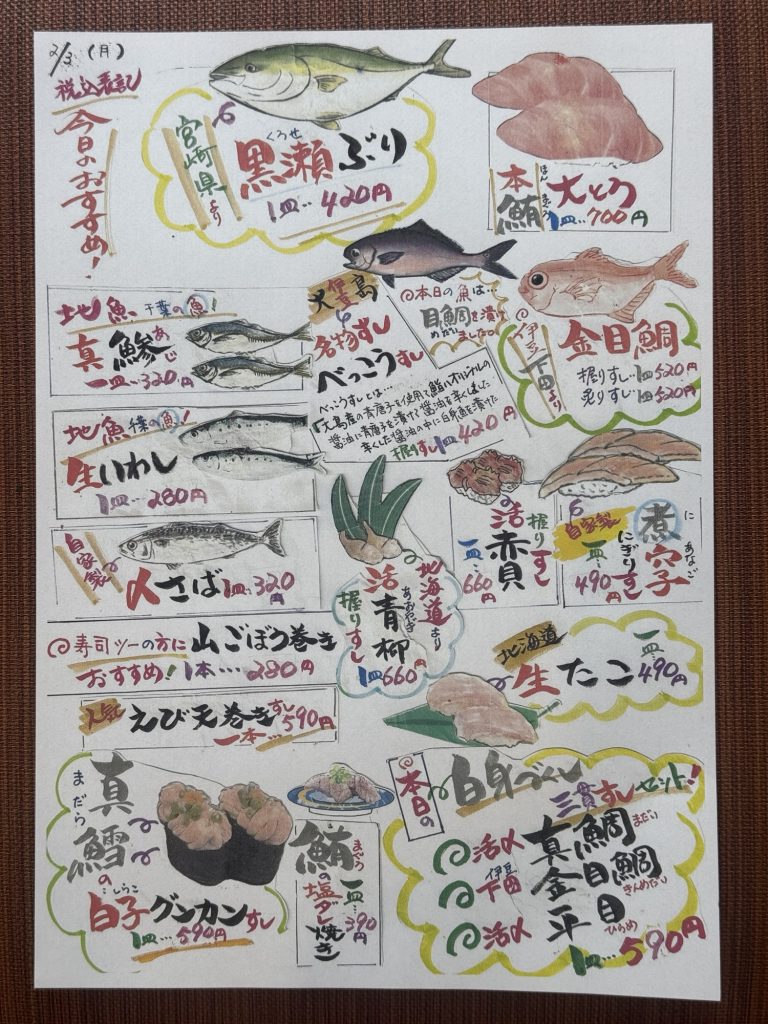 2/3 (月)
税込表記
今日のおすすめ!
宮崎県より
くろせ
黒瀬ぶり
1皿‥420円
ほんまぐろ
本鮪
大とろ
1皿‥700円
地魚 千葉の魚!
あじ
真鯵
一皿‥320円
伊豆大島
名物すし
べっこうすし
本日の魚は…
目鯛を漬け
めだい
ましたの。
べっこうすしとは…
大島産の青唐子を使用して鮨いオリジナルの
醤油に青唐子を漬けて醤油を辛くしました
辛くした醤油の中に白身魚を漬けた
握りすし1皿 420円
伊豆下田より
金目鯛
握りすし‥1皿520円
炙りすし‥1皿520円
地魚 千葉の魚!
生いわし
1皿‥280円
自家製
〆さば 1皿‥320円
北海道より
活青柳
あおやぎ
握りすし
1皿660円
活赤貝
握りすし
一皿‥660円
自家製
煮穴子
にあなご
にぎりすし
一皿‥490円
寿司ツーの方に
おすすめ!
山ごぼう巻き
1本‥‥280円
人気
えび天巻きすし
一本‥590円
北海道
生たこ
一皿‥490円
まだら
真鱈の
しらこ
白子グンカンすし
1皿‥590円
まぐろ
鮪の塩ダレ焼き
一皿‥390円
本日の
白身づくし
三貫すしセット!
活〆 真鯛 まだい
伊豆下田 金目鯛 きんめだい
活〆 平目 ひらめ
1皿‥590円